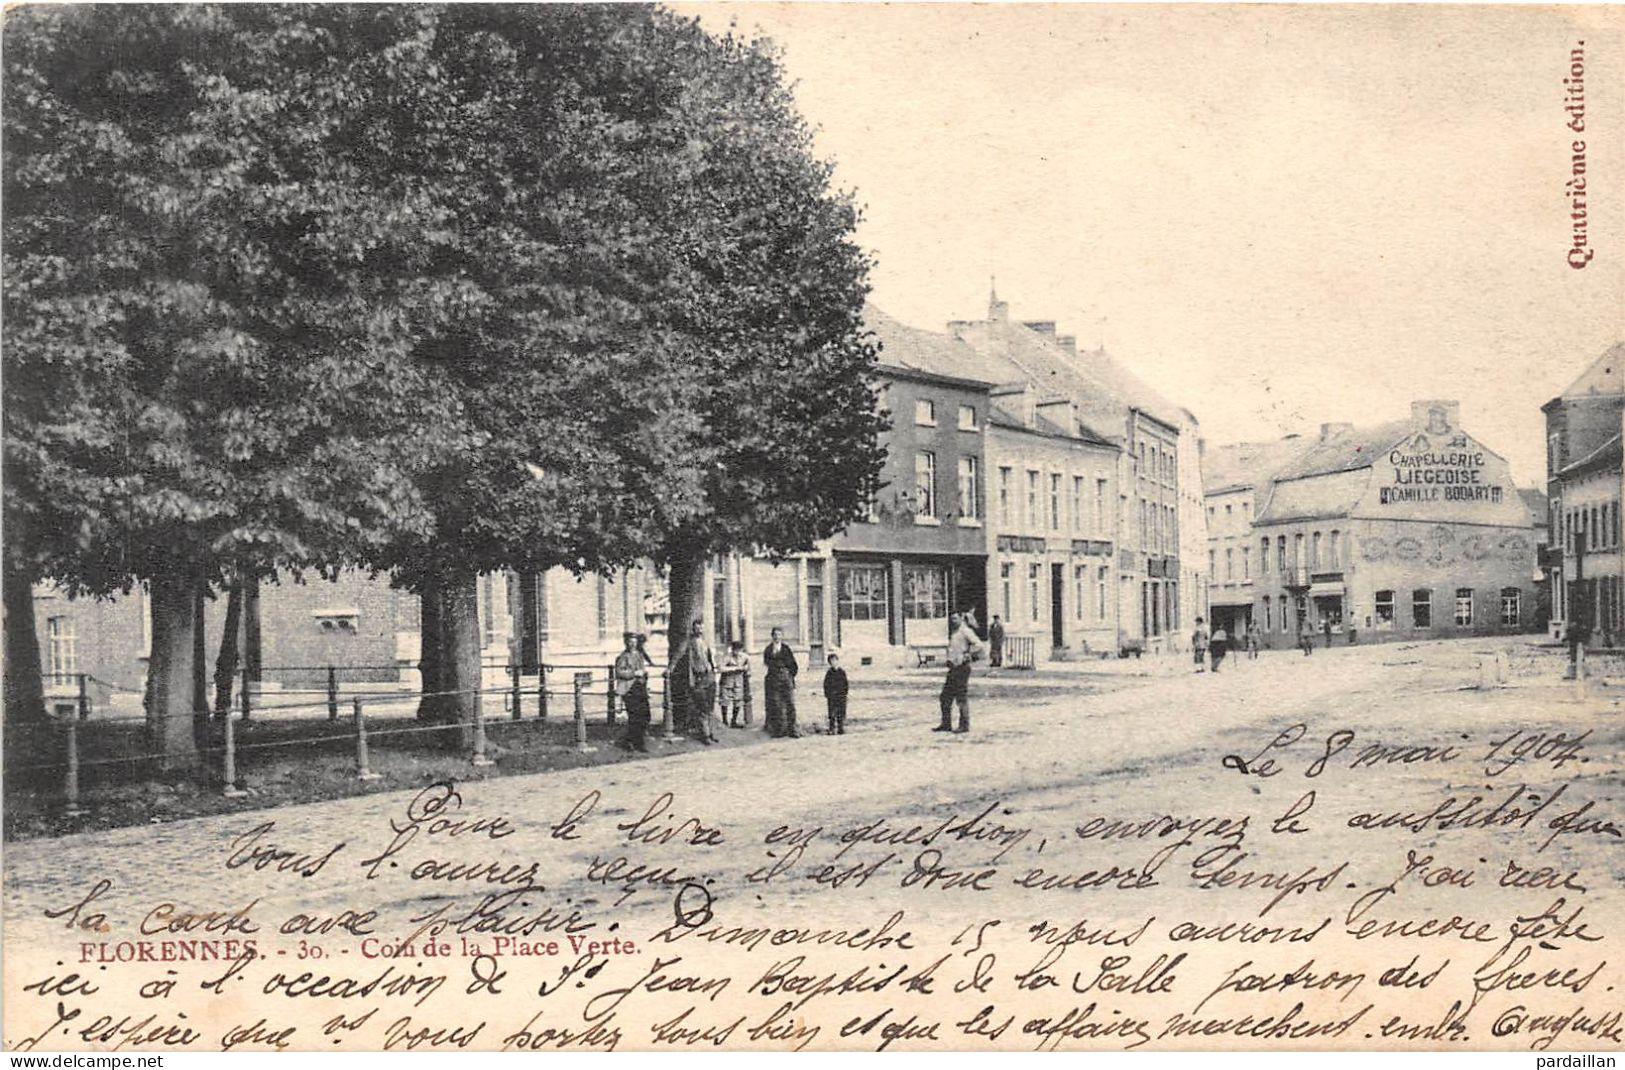 Quatrième édition.
CHAPELLERIE
LIEGEOISE
CAMILLE BODART
Le 8 mai 1904.
Pour le livre en question, envoyez le aussitôt que
vous l'aurez reçu. il est donc encore temps. J'ai reçu
la carte avec plaisir. Dimanche 15 nous aurons encore fête
FLORENNES. - 30. - Coin de la Place Verte.
ici à l'occasion de St Jean Baptiste de la Salle patron des frères.
J'espère que vs vous portez tous bien et que les affaires marchent. embr. Auguste
pardaillan
delcampe.net